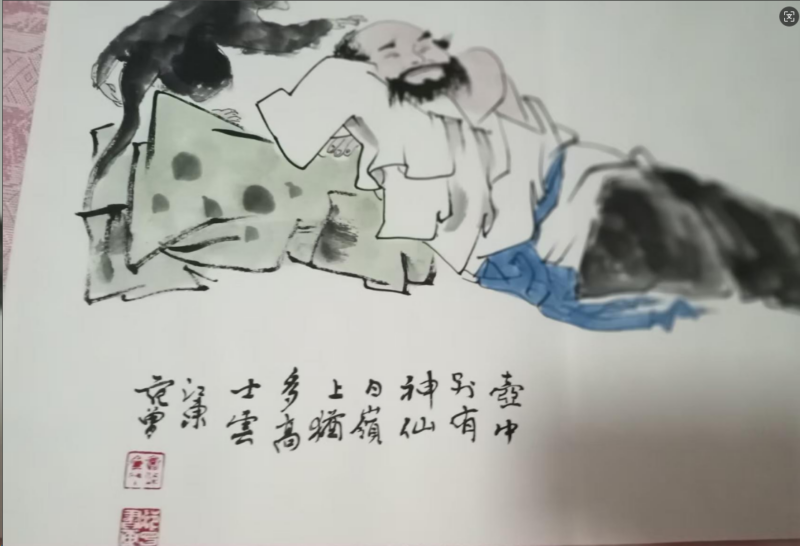 壺中
別有
神仙
日嶺
上猶
多高
士雲
江東
范曾